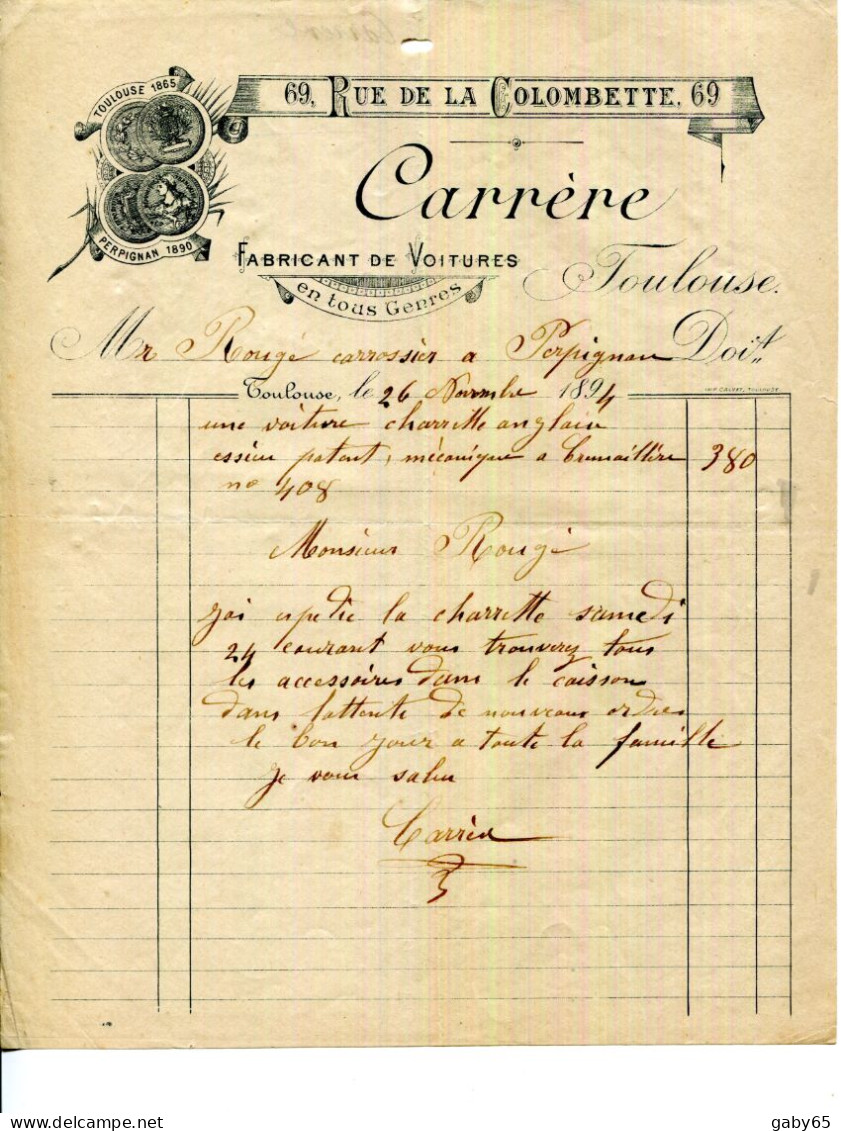 TOULOUSE 1865
PERPIGNAN 1890
69, RUE DE LA COLOMBETTE, 69
Carrère
FABRICANT DE VOITURES
en tous Genres
Toulouse.
Mr Rougé carrossier a Perpignan Doit
Toulouse, le 26 Novembre 1894
IMP. CALVET, TOULOUSE
une voiture charrette anglaise
essieu patent, mécanique a Cremaillère 380
no 408
Monsieur Rougé
jai expedie la charrette samedi
24 courant vous trouverez tous
les accessoires dans le caisson
dans lattente de nouveaux ordres
le bon jour a toute la famille
je vous salue
Carrère
delcampe.net
gaby65